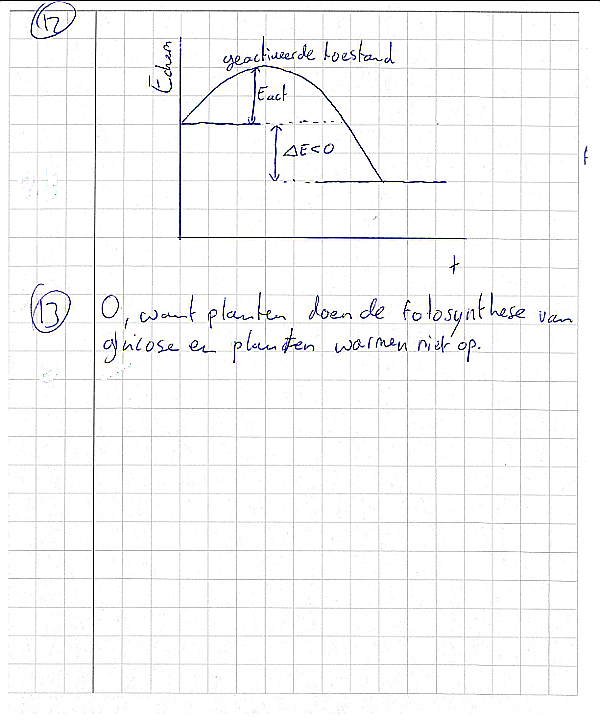 12
Echem
geactiveerde toestand
Eact
ΔE<0
t
t
13
O, want planten doen de fotosynthese van
glucose en planten warmen niet op.